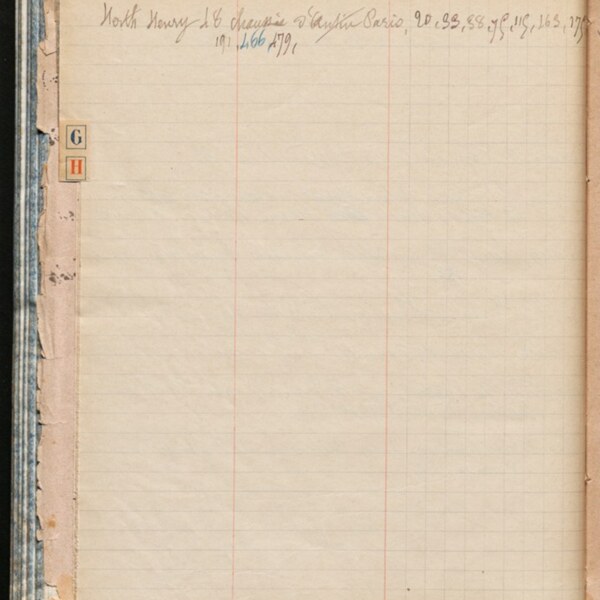 North Henry 48 chaussée d'Antin Paris, 20, 33, 38, 75, 115, 163, 175
191, 466, 479,
G
H